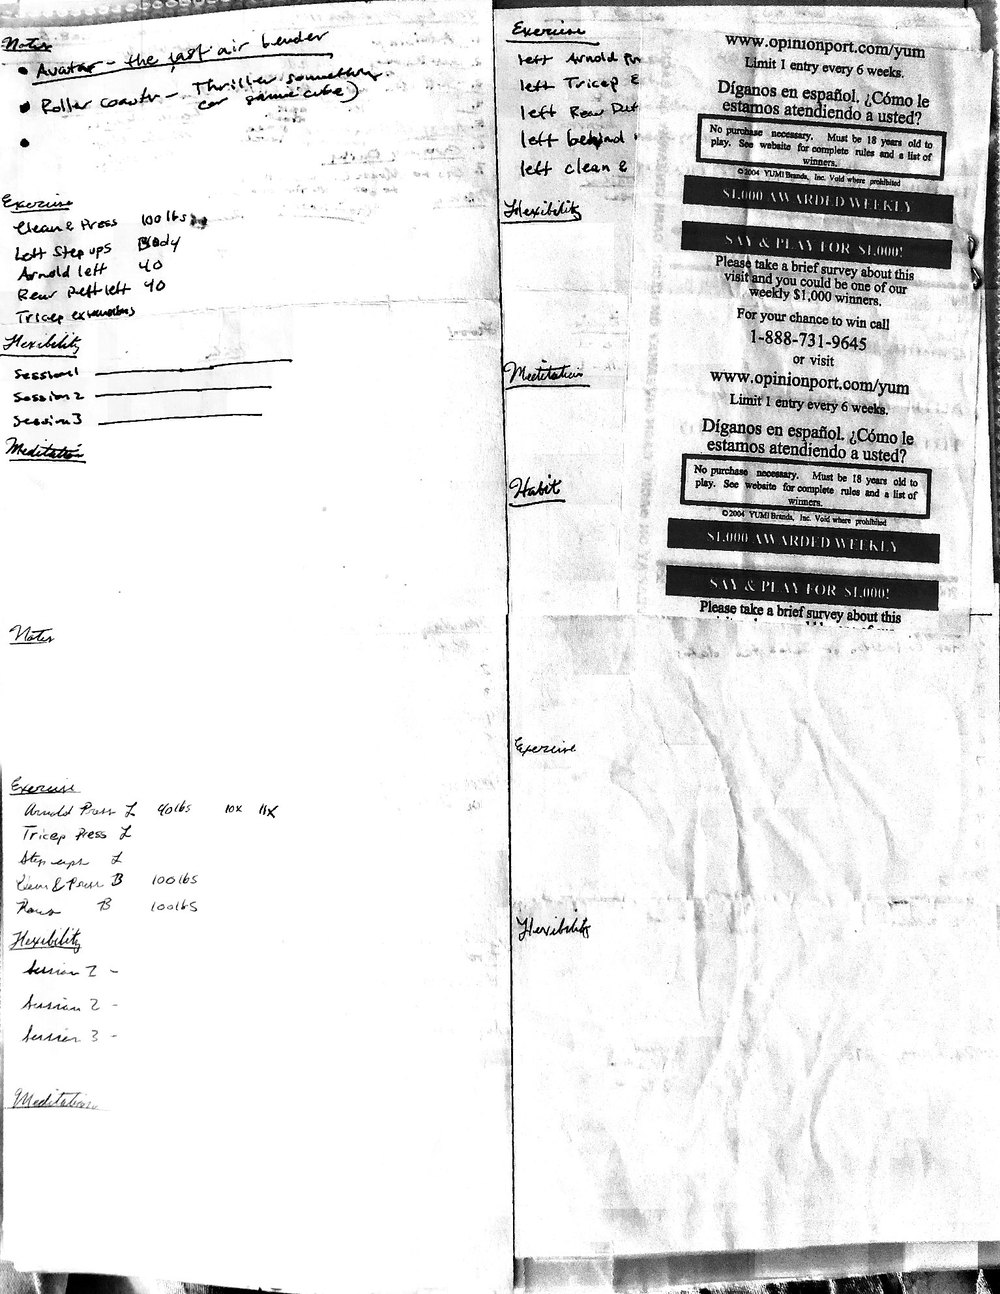 Notes
• Avatar - the last air bender
• Roller coaster - Thriller something
car
•
Exercise
Clean & Press 100 lbs
Left Step ups Body
Arnold left 40
Rear Delt left 40
Tricep extensions
Flexibility
Session 1
Session 2
Session 3
Meditation
Notes
Exercise
Arnold Press L 40lbs 10x 11x
Tricep Press L
Step ups L
Clean & Press B 100lbs
Rows B 100lbs
Flexibility
Session 1 -
Session 2 -
Session 3 -
Meditation
Exercise
left Arnold
left Tricep
left Rear Delt
left behind
left clean &
Flexibility
Meditation
Habit
www.opinionport.com/yum
Limit 1 entry every 6 weeks.
Díganos en español. ¿Cómo le
estamos atendiendo a usted?
No purchase necessary. Must be 18 years old to
play. See website for complete rules and a list of
winners.
©2004 YUM! Brands, Inc. Void where prohibited
$1,000 AWARDED WEEKLY
SAY & PLAY FOR $1,000!
Please take a brief survey about this
visit and you could be one of our
weekly $1,000 winners.
For your chance to win call
1-888-731-9645
or visit
www.opinionport.com/yum
Limit 1 entry every 6 weeks.
Díganos en español. ¿Cómo le
estamos atendiendo a usted?
No purchase necessary. Must be 18 years old to
play. See website for complete rules and a list of
winners.
©2004 YUM! Brands, Inc. Void where prohibited
$1,000 AWARDED WEEKLY
SAY & PLAY FOR $1,000!
Please take a brief survey about this
Exercise
Flexibility